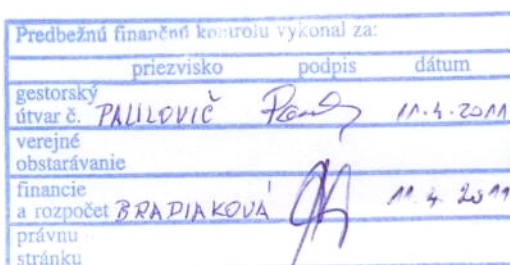 Predbežnú finančnú kontrolu vykonal za:
priezvisko podpis dátum
gestorský
útvar č. PALILOVIČ 11.4.2011
verejné
obstarávanie
financie
a rozpočet BRADIAKOVÁ 11.4.2011
právnu
stránku